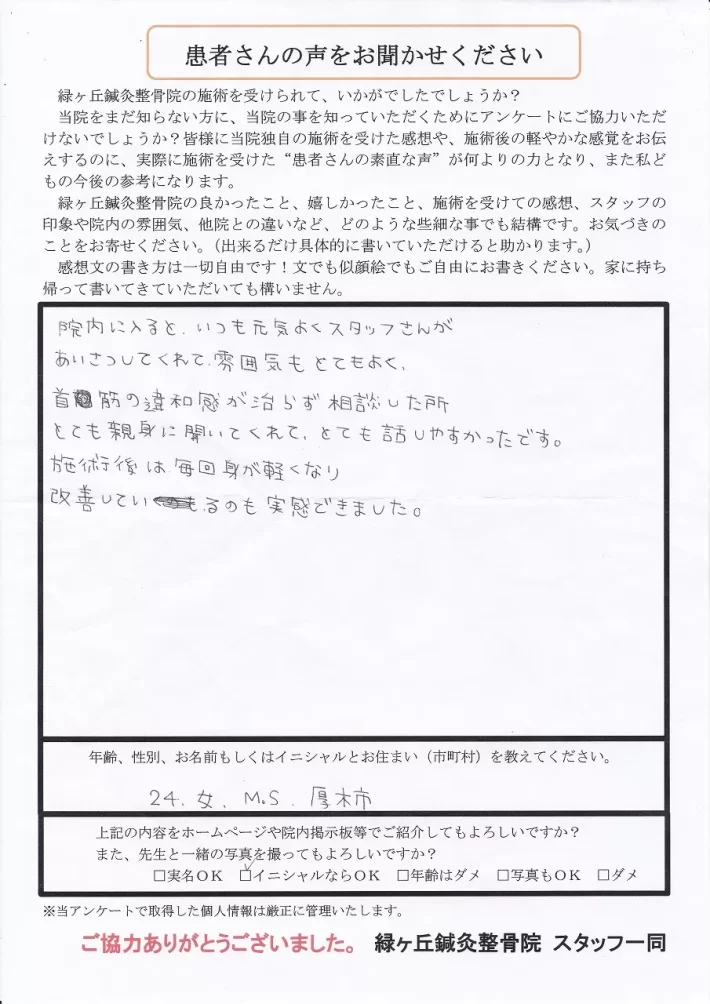 患者さんの声をお聞かせください
緑ヶ丘鍼灸整骨院の施術を受けられて、いかがでしたでしょうか？
当院をまだ知らない方に、当院の事を知っていただくためにアンケートにご協力いただ
けないでしょうか？皆様に当院独自の施術を受けた感想や、施術後の軽やかな感覚をお伝
えするのに、実際に施術を受けた“患者さんの素直な声”が何よりの力となり、また私ど
もの今後の参考になります。
緑ヶ丘鍼灸整骨院の良かったこと、嬉しかったこと、施術を受けての感想、スタッフの
印象や院内の雰囲気、他院との違いなど、どのような些細な事でも結構です。お気づきの
ことをお寄せください。（出来るだけ具体的に書いていただけると助かります。）
感想文の書き方は一切自由です！文でも似顔絵でもご自由にお書きください。家に持ち
帰って書いてきていただいても構いません。
院内に入ると、いつも元気よくスタッフさんが
あいさつしてくれて、雰囲気もとてもよく、
首筋の違和感が治らず相談した所
とても親身に聞いてくれて、とても話しやすかったです。
施術後は毎回身が軽くなり
改善しているのも実感できました。
年齢、性別、お名前もしくはイニシャルとお住まい（市町村）を教えてください。
24. 女. M.S. 厚木市
上記の内容をホームページや院内掲示板等でご紹介してもよろしいですか？
また、先生と一緒の写真を撮ってもよろしいですか？
□実名ＯＫ ☑イニシャルならＯＫ □年齢はダメ □写真もＯＫ □ダメ
※当アンケートで取得した個人情報は厳正に管理いたします。
ご協力ありがとうございました。 緑ヶ丘鍼灸整骨院 スタッフ一同